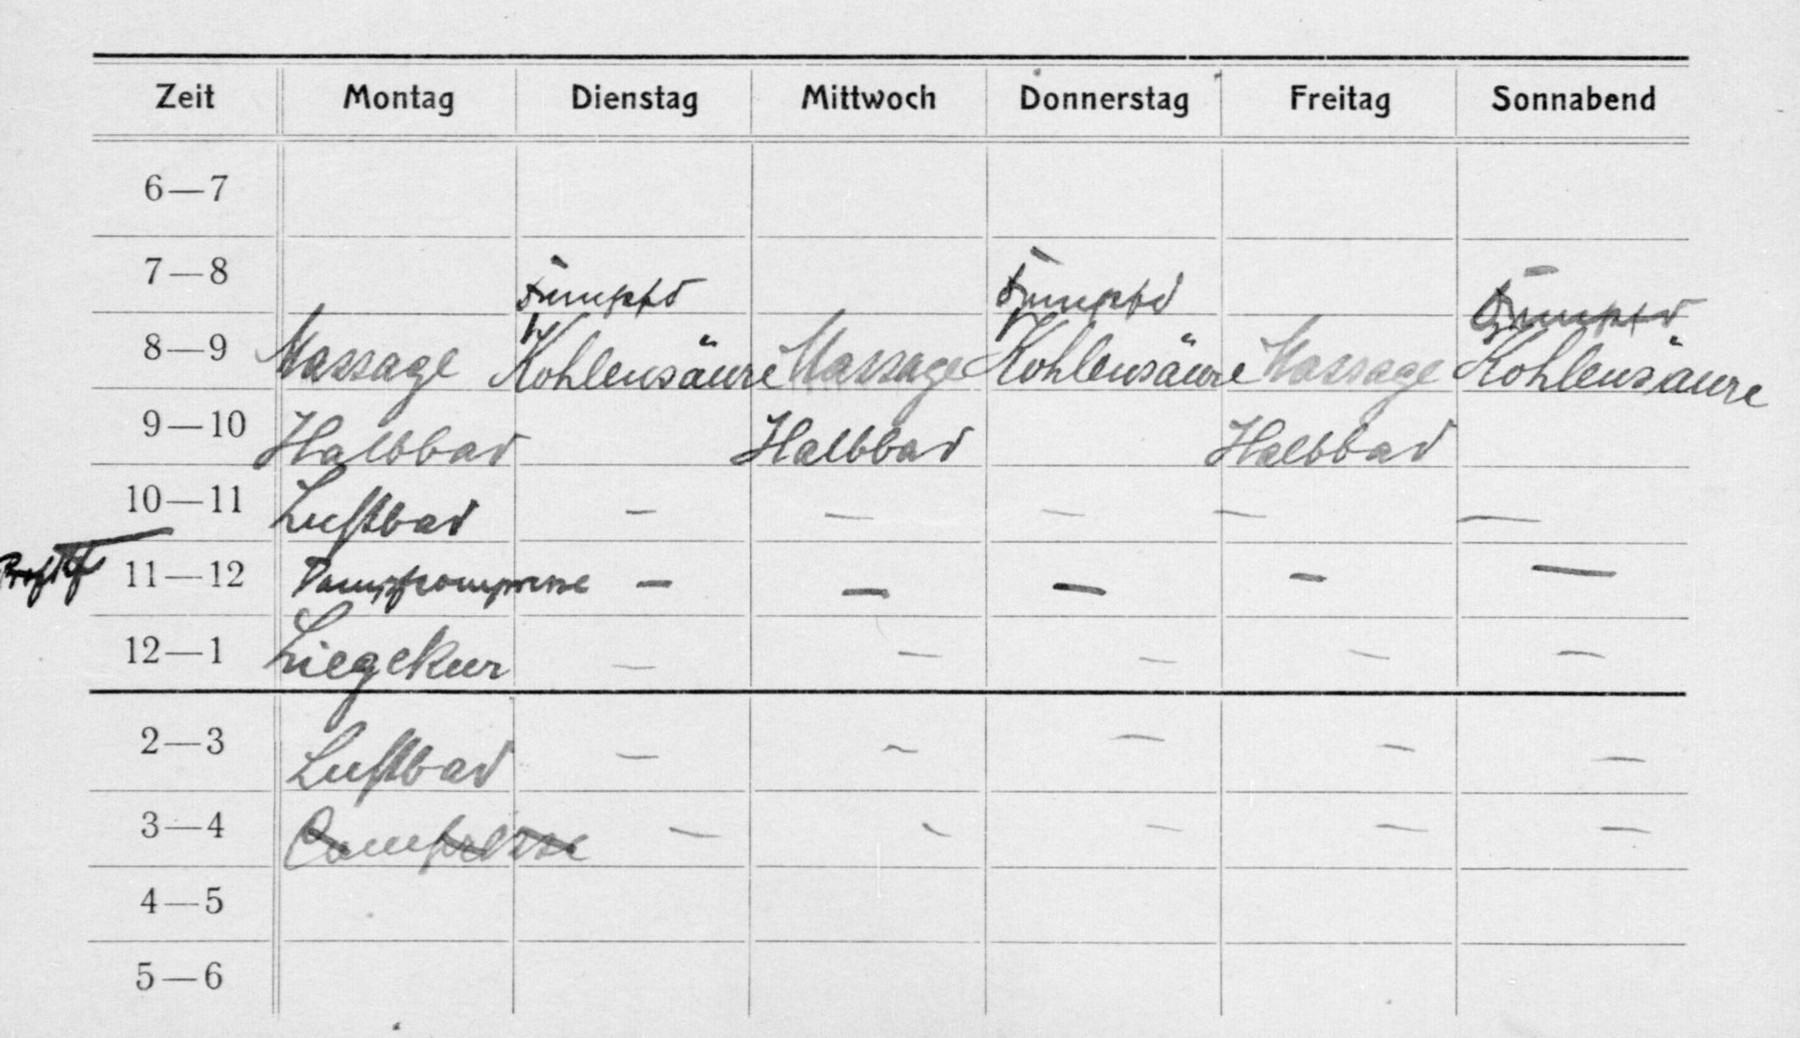 Zeit Montag Dienstag Mittwoch Donnerstag Freitag Sonnabend
6—7
7—8
8—9 Massage Kohlensäure Massage Kohlensäure Massage Kohlensäure
9—10 Halbbad Halbbad Halbbad
10—11 Luftbad — — — — —
11—12 Dampfkompresse — — — — —
12—1 Liegekur — — — — —
2—3 Luftbad — — — — —
3—4 Compresse — — — — —
4—5
5—6